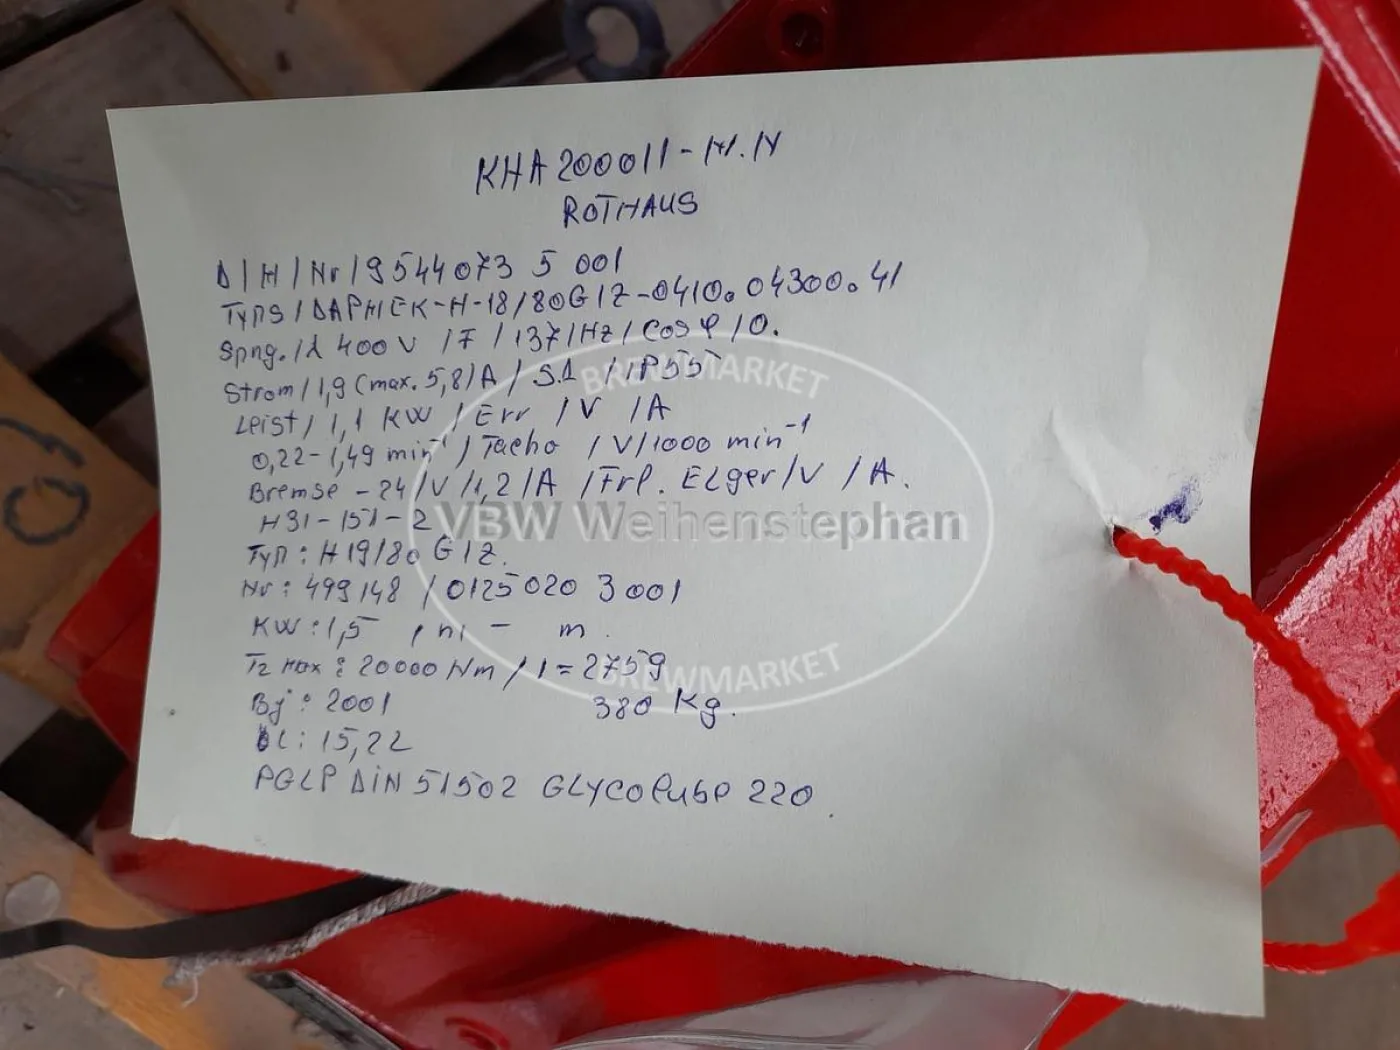 KHA200011-
ROTHAUS
D/H/Nr/9544073 5 001
Typs/DAPHCK-H-18/80G1Z-0410.04300.41
Spng./λ 400 V /F/137/Hz/Cos φ/0.
Strom/1,9(max.5,8)A/S1 /IP55
Leist/1,1 KW /Err /V /A
0,22-1,49 min⁻¹/Tacho /V/1000 min⁻¹
Bremse -24/V/1,2/A /Frl. ELger/V /A.
H31-151-2
Typ: H19/80 G1Z.
Nr: 499148 /0125020 3001
KW:1,5 , n1 - m.
T2 max: 20000 Nm / i=2759
Bj: 2001 380 Kg.
ÖL: 15,2L
PGLP DIN 51502 GLYCOlube 220.
BREWMARKET
VBW Weihenstephan
BREWMARKET